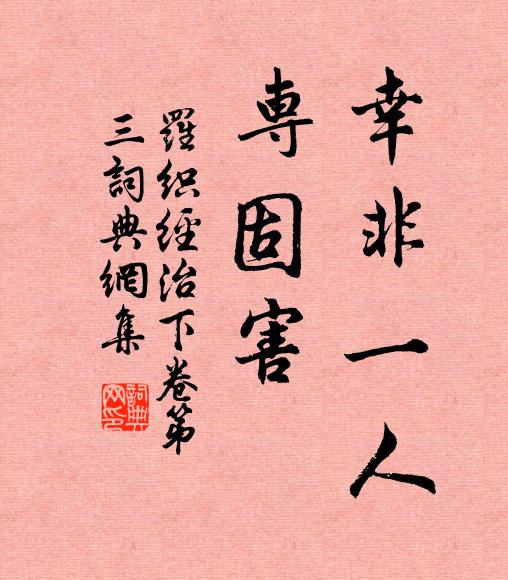 幸非一人
専固害
羅织經治下卷第
三詞典網集
詞典
网印